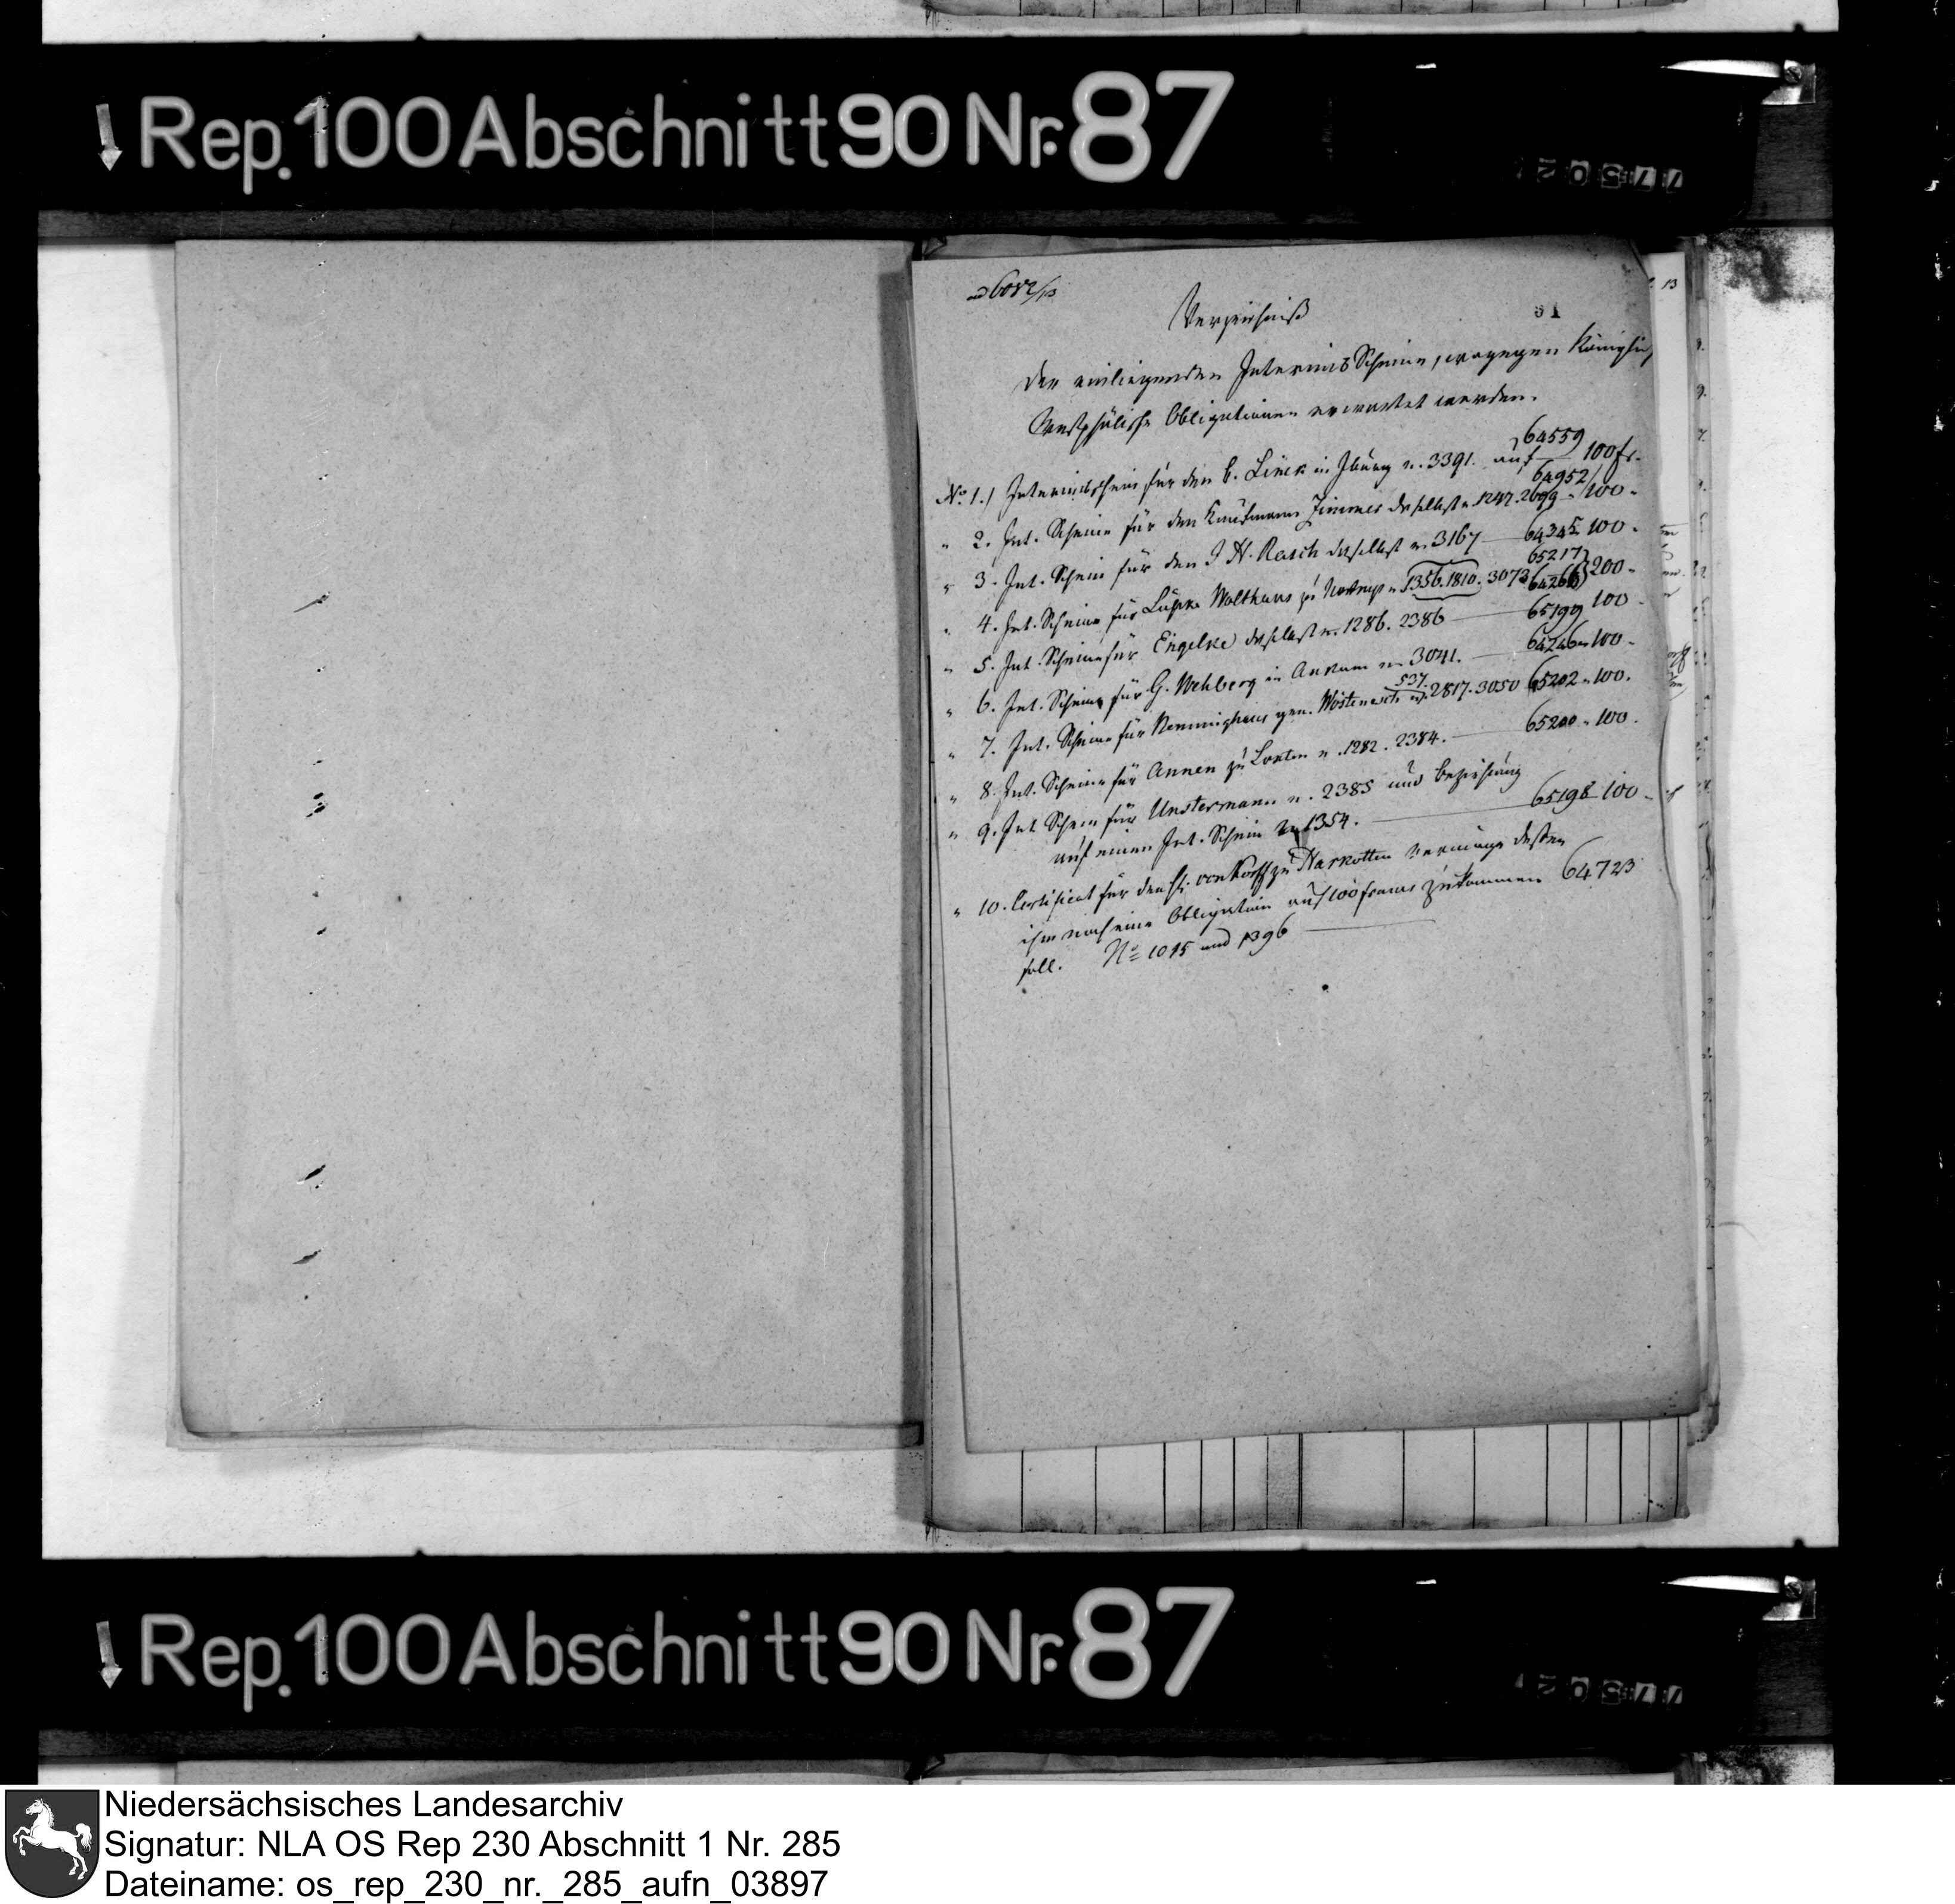 Rep. 100 Abschnitt 90 Nr. 87
ad 6082/13
91
Verzeichniß
der einliegenden Interims Scheine, wogegen Königlich
Westphälische Obligationen erwartet werden.
64559
No. 1.) Interimsschein für den C. Linck in Iburg n. 3391. auf 100 fr.
64952
" 2. Int. Scheine für den Kaufmann Zimmer daselbst n. 1247. 2699 - 100 -
" 3. Int. Schein für den J H. Rasch daselbst n. 3167 — 64345 100 -
65217
" 4. Int. Scheine für Lüpke Wolthaus zu Nortrup n. 1356. 1810. 3073 64266 200 -
" 5. Int. Scheine für Engelke daselbst n. 1286. 2386 — 65199 100 -
" 6. Int. Schein für G. Wehberg in Ankum n. 3041. — 64246 - 100 -
537.
" 7. Int. Scheine für Remminghaus gen. n. 2817. 3050 65202 - 100.
" 8. Int. Scheine für Annen zu Loxten n. 1282. 2384. — 65200 - 100.
" 9. Int Schein für Unstermann n. 2385 und Beziehung
auf einen Int. Schein n. 1354. — 65198 100 -
" 10. Certificat für den H. von Korff zu Harkotten vermöge dessen
ihm noch eine Obligation auf 100 francs zukommen 64723
soll. No 1015 und 1396 —
Rep. 100 Abschnitt 90 Nr. 87
Niedersächsisches Landesarchiv
Signatur: NLA OS Rep 230 Abschnitt 1 Nr. 285
Dateiname: os_rep_230_nr._285_aufn_03897